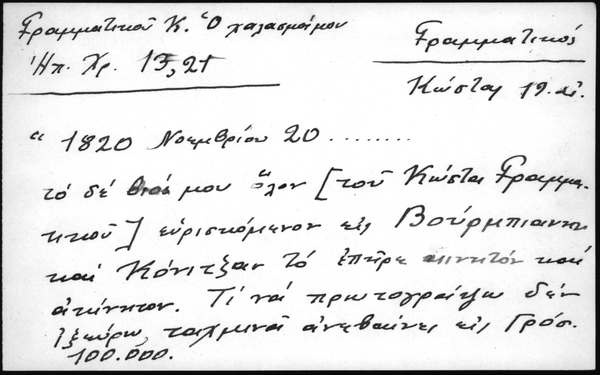 Γραμματικοῦ Κ. Ὁ χαλασμὸς μου
Ἠπ. Χρ. 15, 21
Γραμματικός
Κώστας 19. αἰ.
“ 1820 Νοεμβρίου 20 ........
τό δέ μου ὅλον [τοῦ Κώστα Γραμμα-
τικοῦ] εὑρισκόμενον εἰς Βούρμπιανην
καί Κόνιτζαν τό ἐπῆρε κινητόν καί
ἀκίνητον. Τί νά πρωτογράψω δέν
ἠξεύρω, ταχμινᾶ ἀνεβαίνει εἰς Γρόσ.
100.000.